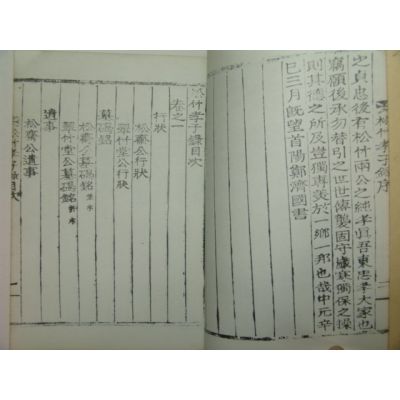 松竹孝子錄序
之貞忠後有松竹兩公之純孝眞吾東忠孝大家也
竊願後承勿替引之世世傳襲固守歲寒獨保之操
則其德之所及豈獨專美於一鄉一邦也哉中元辛
巳三月旣望首陽鄭濟國書
松竹孝子錄目次
卷之一
行狀
松齋公行狀
翠竹堂公行狀
墓碣銘
松齋公墓碣銘 幷序
翠竹堂公墓碣銘 幷序
遺事
松齋公遺事